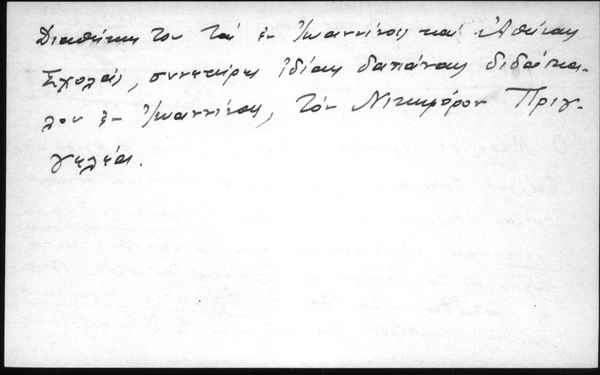 Διαθήκης του τάς ἐν Ἰωαννίνοις καί Ἀθήναις
Σχολάς, συνετήρει ἰδίαις δαπάναις διδάσκα-
λον ἐν Ἰωαννίνοις, τόν Νικηφόρον Πριγ-
γελέα.